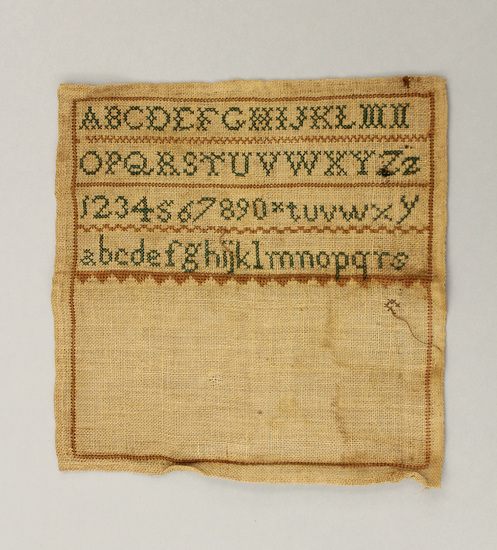 ABCDEFGHIJKLMN
OPQRSTUVWXYZz
1234567890*tuvwxy
abcdefghijklmnopqrs